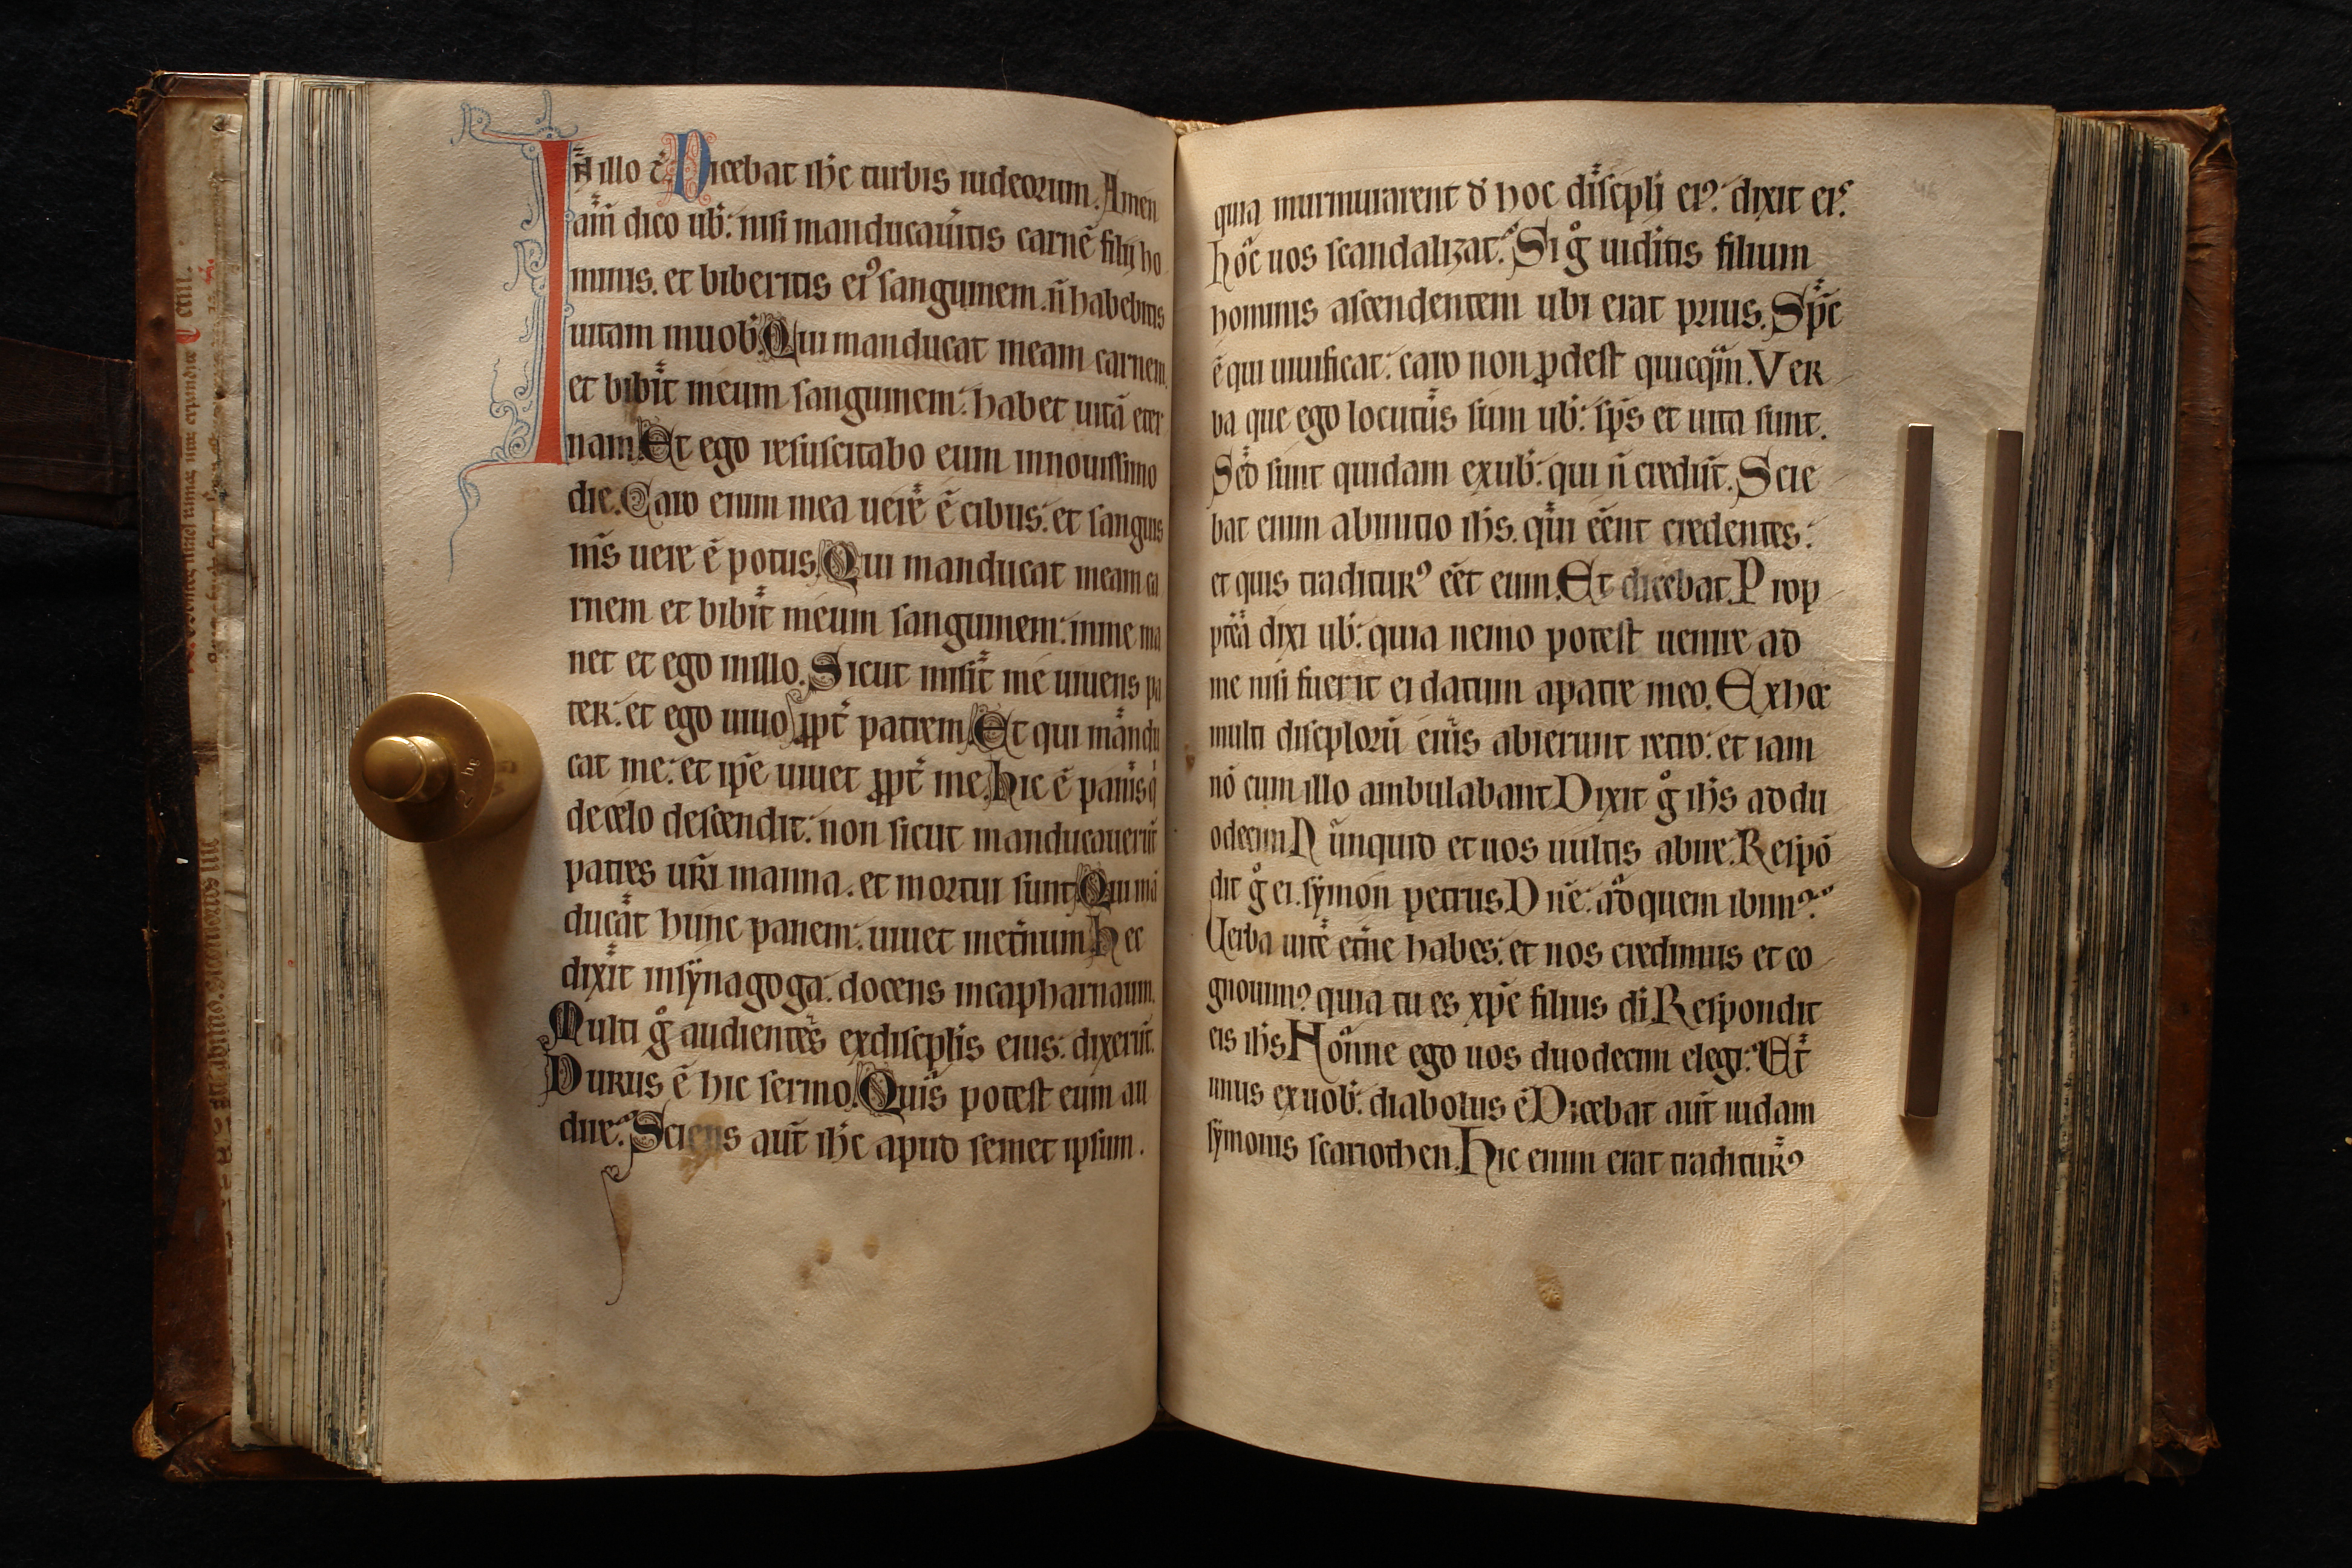 In illo t̄. Dicebat ih̄c turbis iudeorum. Amen
am̄ dico ub̄: nisi manducaueritis carnē filij ho
minis. et biberitis ei⁹ sanguinem. n̄ habebitis
uitam in uob̄. Qui manducat meam carnem.
et bibit meum sanguinem: habet uitā eter
nam. Et ego resuscitabo eum in nouissimo
die. Caro enim mea uere ē cibus: et sanguis
m̄s uere ē potus. Qui manducat meam ca
rnem et bibit meum sanguinem: in me ma
net et ego in illo. Sicut misit me uiuens pa
ter: et ego uiuo ꝓpt̄ patrem. Et qui mandu
cat me: et ip̄e uiuet ꝓpt̄ me. Hic ē panis q̇
de celo descendit: non sicut manducauerūt
patres ur̄i manna. et mortui sunt. Qui mā
ducat hunc panem: uiuet in et̄num. Hec
dixit in sẏnagoga: docens in capharnaum.
Multi g̊ audientes ex discip̄lis eius: dixerūt.
Durus ē hic sermo. Quis potest eum au
dire? Sciens aut̄ ih̄c apud semet ipsum.
quia murmurarent d̄ hoc discip̄li ei⁹: dixit eis.
Hoc uos scandalizat? Si g̊ uiditis filium
hominis ascendentem ubi erat prius. Sp̄c
ē qui uiuificat: caro non ꝓdest quicq̄m. Ver
ba que ego locutus sum ub̄: sp̄s et uita sunt.
Sed sunt quidam ex ub̄: qui n̄ credūt. Scie
bat enim ab initio ih̄s. qui eēnt credentes:
et quis traditur⁹ eēt eum. Et dicebat. Prop
pt̄ea dixi ub̄: quia nemo potest uenire ad
me nisi fuerit ei datum a patre meo. Ex hoc
multi discip̄lorū eius abierunt retro: et iam
nō cum illo ambulabant. Dixit g̊ ih̄s ad du
odecim. Nunquid et uos uultis abire? Respō
dit g̊ ei. sẏmon petrus. Dn̄e: ad quem ibim⁹?
Uerba uite et̄ne habes: et nos credimus et co
gnouim⁹ quia tu es xp̄c filius di. Respondit
eis ih̄s. Nonne ego uos duodecim elegi? Et
unus ex uob̄: diabolus ē. Dicebat aut̄ iudam
sẏmonis scariothen. Hic enim erat traditur⁹